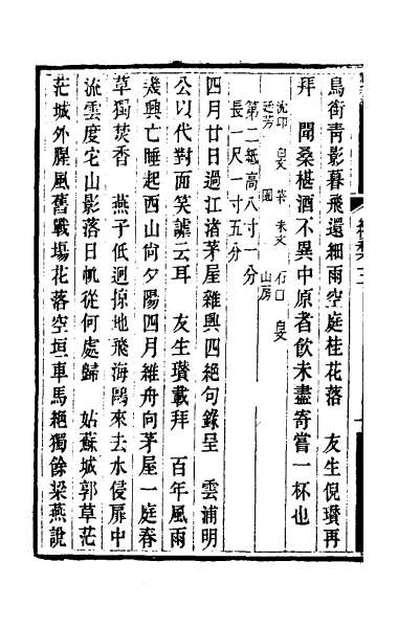 鳥銜青影暮飛還細雨空庭桂花落　友生倪瓚再
拜　聞桑椹酒不異中原者飲未盡寄嘗一杯也
第二紙高八寸一分
長一尺一寸五分
四月廿日過江渚茅屋雜興四絕句錄呈　雲浦明
公以代對面笑謔云耳　友生瓚載拜　百年風雨
幾興亡睡起西山尙夕陽四月維舟向茅屋一庭春
草獨焚香　燕子低迴掠地飛海鷗來去水侵扉中
流雲度宅山影落日帆從何處歸　姑蘇城郭草茫
茫城外腥風舊戰場花落空垣車馬絕獨餘梁燕說